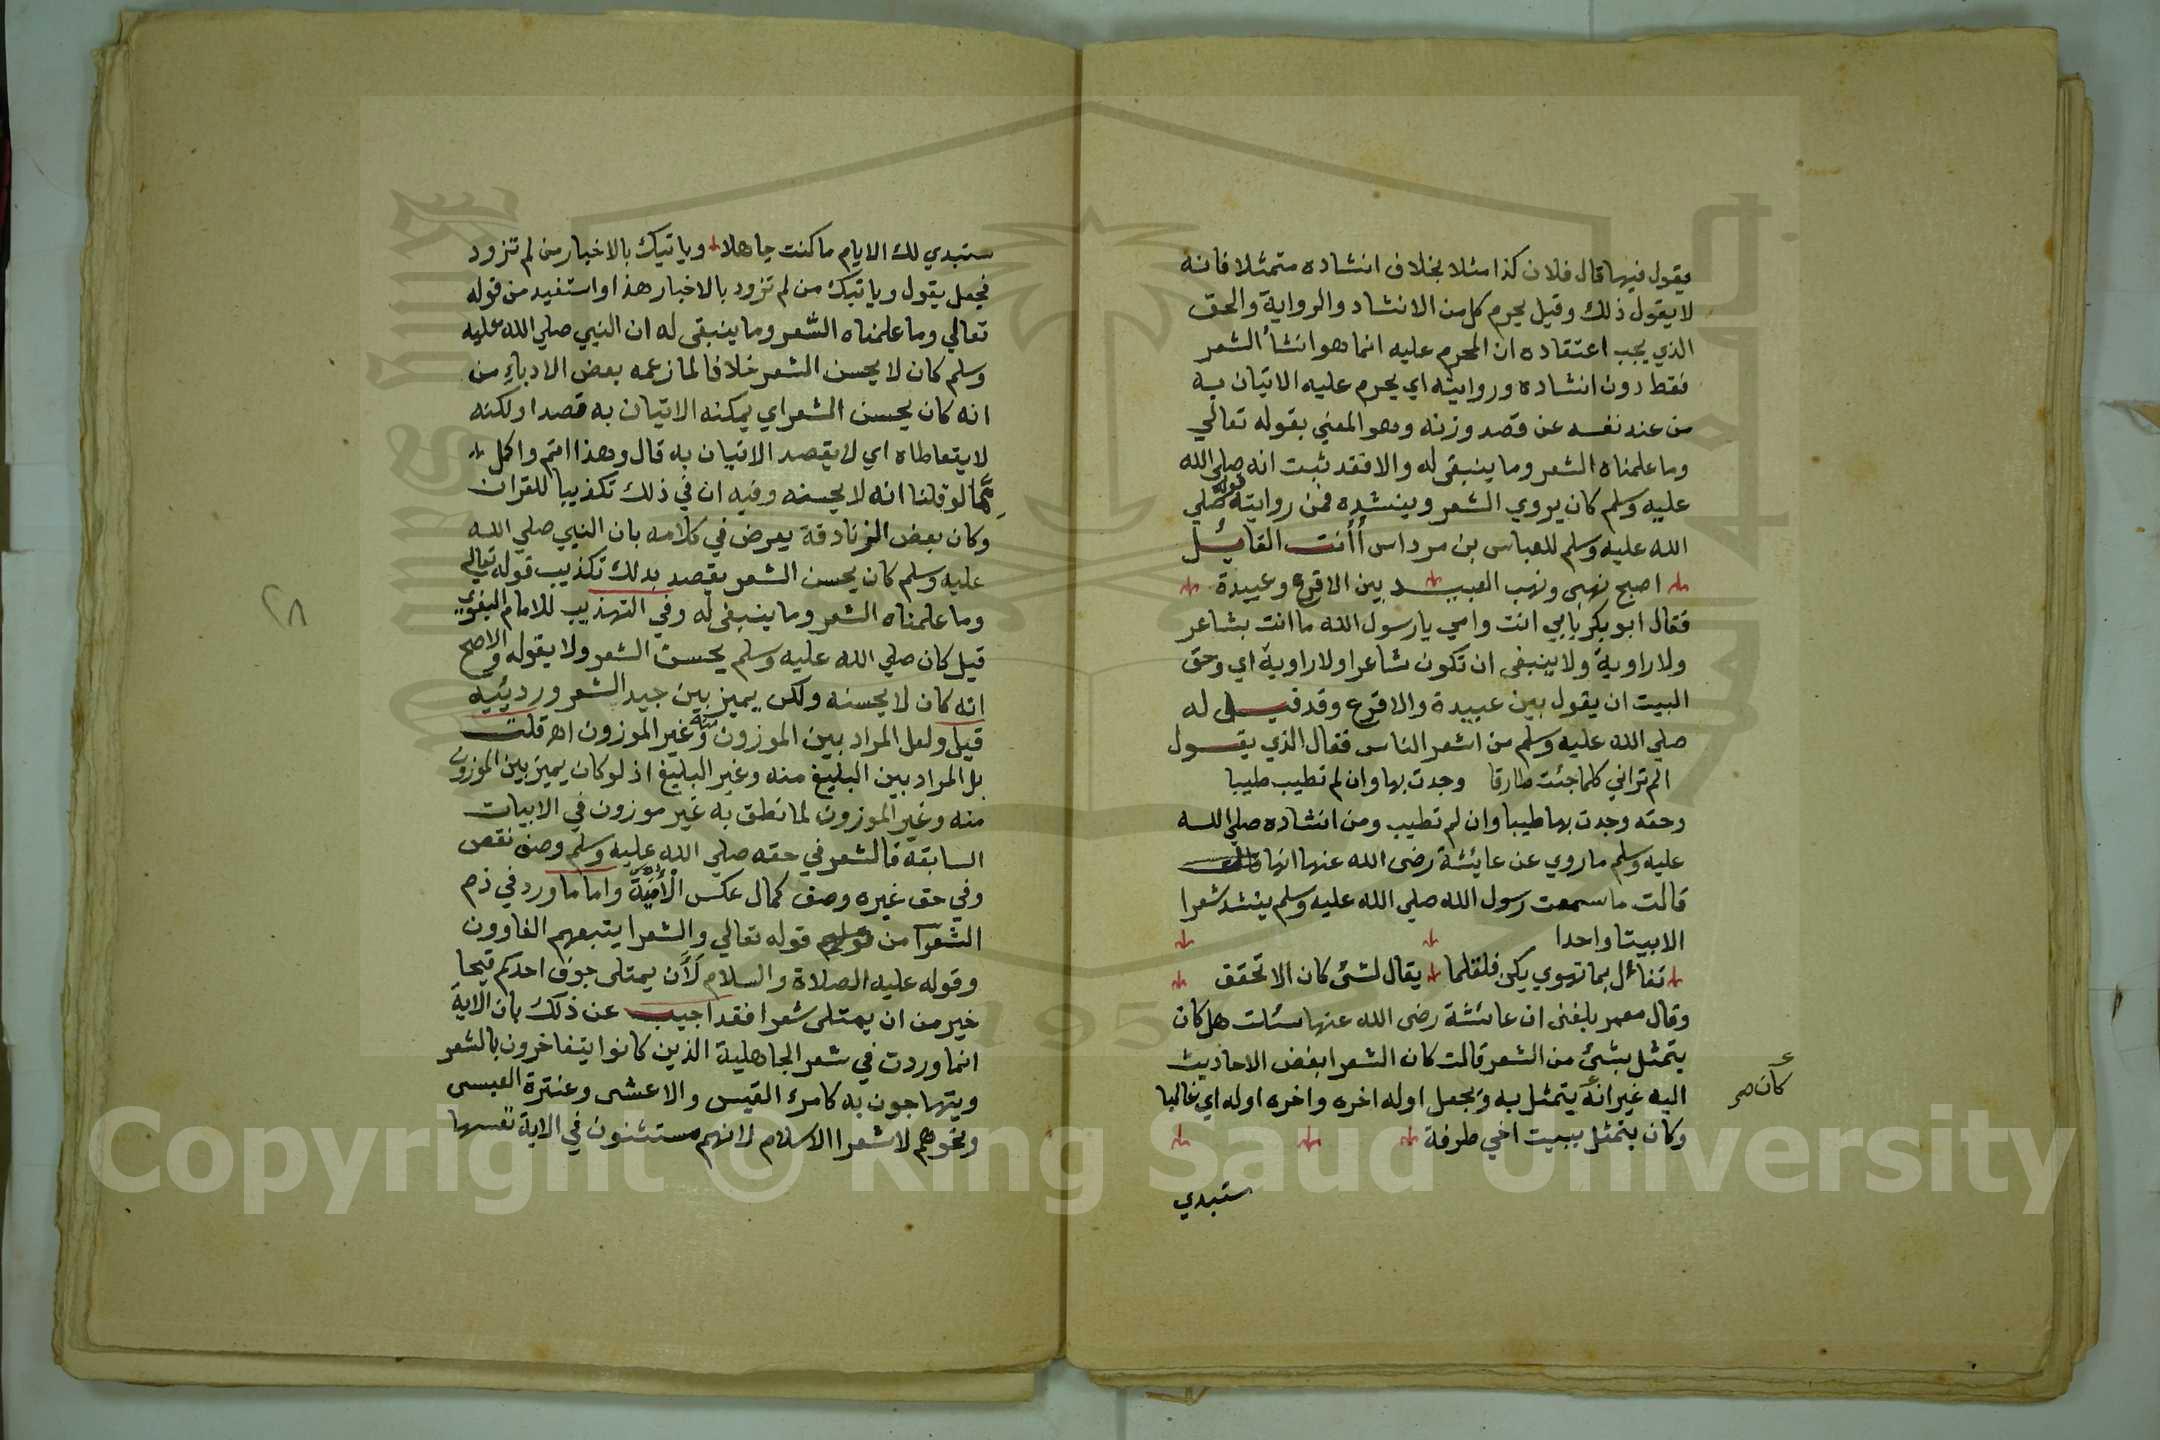 يقول فيها قال فلان كذا مثلا بخلاف انشاده متمثلا فانه
لا يقول ذلك وقيل يحرم كل من الانشاد والرواية والحق
الذي يجب اعتقاده ان المحرم عليه انما هو انشأ الشعر
فقط دون انشاده وروايته اي يحرم عليه الاتيان به
من عند نفسه عن قصد وزنه وهو المعني بقوله تعالي
وما علمناه الشعر وما ينبغي له والا فقد ثبت انه صلي الله
عليه وسلم كان يروي الشعر وينشده فمن روايته قوله صلي
الله عليه وسلم للعباس بن مرداس أأنت القايل
اصبح نهبي ونهب العبيد بين الاقرع وعيينة
فقال ابو بكر بابي انت وامي يا رسول الله ما انت بشاعر
ولا راوية ولا ينبغي ان تكون شاعرا ولا راوية اي وحق
البيت ان يقول بين عيينة والاقرع وقد قيل له
صلي الله عليه وسلم من اشعر الناس فقال الذي يقول
الم تراني كلما جئت طارقا وجدت بها وان لم تطيب طيبا
وحقه وجدت بها طيبا وان لم تطيب ومن انشاده صلي الله
عليه وسلم ما روي عن عايشة رضي الله عنها انها قالت
قالت ما سمعت رسول الله صلي الله عليه وسلم ينشد شعرا
الا بيتا واحدا
تفائل بما تهوي يكن فلقلما يقال لشئ كان الا تحقق
وقال معمر بلغني ان عائشة رضي الله عنها سئلت هل كان
يتمثل بشئ من الشعر قالت كان الشعر ابغض الاحاديث
اليه غير انه يتمثل به ويجعل اوله اخره واخره اوله اي غالبا
كان صح
وكان يتمثل ببيت اخي طرفة
ستبدي
ستبدي لك الايام ما كنت جاهلا وياتيك بالاخبار من لم تزود
فجعل يقول وياتيك من لم تزود بالاخبار هذا واستفيد من قوله
تعالي وما علمناه الشعر وما ينبغي له ان النبي صلي الله عليه
وسلم كان لا يحسن الشعر خلافا لما زعمه بعض الادباء من
انه كان يحسن الشعر اي يمكنه الاتيان به قصدا ولكنه
لا يتعاطاه اي لا يقصد الاتيان به قال وهذا اتم واكمل
مما لو قلنا انه لا يحسنه وفيه ان في ذلك تكذيبا للقران
وكان بعض الزنادقة يعرض في كلامه بان النبي صلي الله
عليه وسلم كان يحسن الشعر يقصد بذلك تكذيب قوله تعالي
وما علمناه الشعر وما ينبغي له وفي التهذيب للامام البغوي
قيل كان صلي الله عليه وسلم يحسن الشعر ولا يقوله والاصح
انه كان لا يحسنه ولكن يميز بين جيد الشعر ورديئيه
قيل ولعل المراد بين الموزون منه وغير الموزون اه قلت
بل المراد بين البليغ منه وغير البليغ اذ لو كان يميز بين الموزون
منه وغير الموزون لما نطق به غير موزون في الابيات
السابقة فالشعر في حقه صلي الله عليه وسلم وصف نقص
وفي حق غيره وصف كمال عكس الأمية واما ما ورد في ذم
الشعرآ من قوله تعالي والشعرا يتبعهم الغاوون
وقوله عليه الصلاة والسلام لأن يمتلي جوف احدكم قيحا
خير من ان يمتلي شعرا فقد اجيب عن ذلك بان الاية
انما وردت في شعر الجاهلية الذين كانوا يتفاخرون بالشعر
ويتهاجون به كامرئ القيس والاعشي وعنترة العبسي
ونحوهم لا شعرا الاسلام لانهم مستثنون في الاية نفسها
٢٨
Copyright © King Saud University
1957